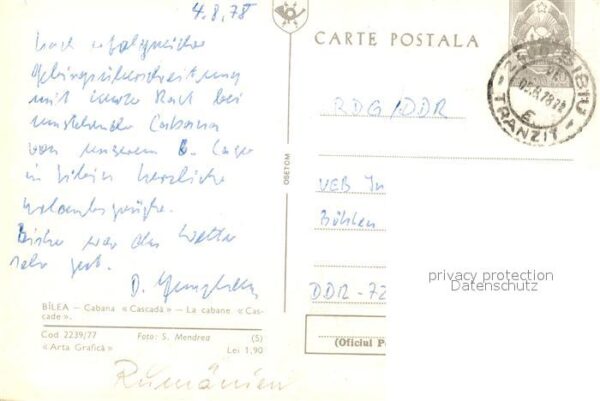 4.8.78
nach erfolgreicher
Gebirgsüberschreitung
mit kurzer Rast bei
umstehender Cabana
von unserem Lager
in herzliche
Urlaubsgrüße.
Bisher war das Wetter
sehr gut.
D.
BÎLEA — Cabana « Cascadă » — La cabane « Cas-
cade ».
Cod 2239/77 Foto: S. Mendrea (5)
« Arta Grafică » Lei 1,90
Rumänien
OSETOM
CARTE POSTALA
SIBIU
TRANZIT
RDG/DDR
VEB In
Böhlen
DDR-72
(Oficiul P
privacy protection
Datenschutz